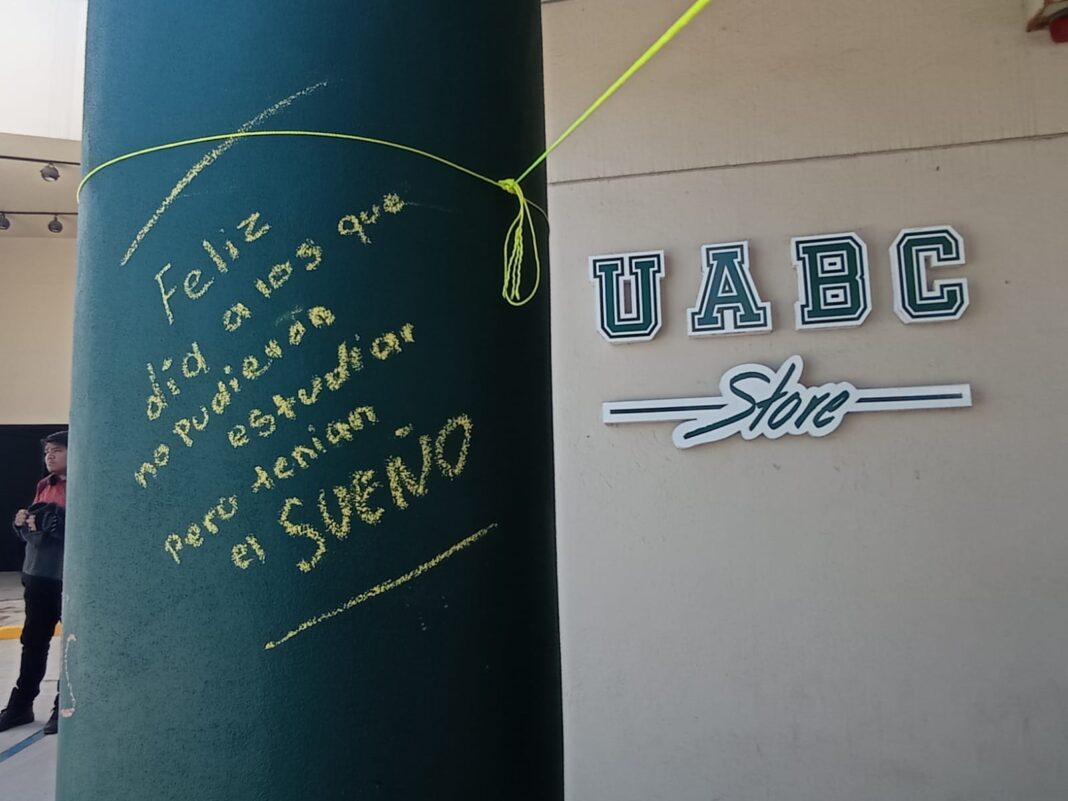 Feliz
día a los que
no pudieron
estudiar
pero tenian
el SUEÑO
UABC
Store